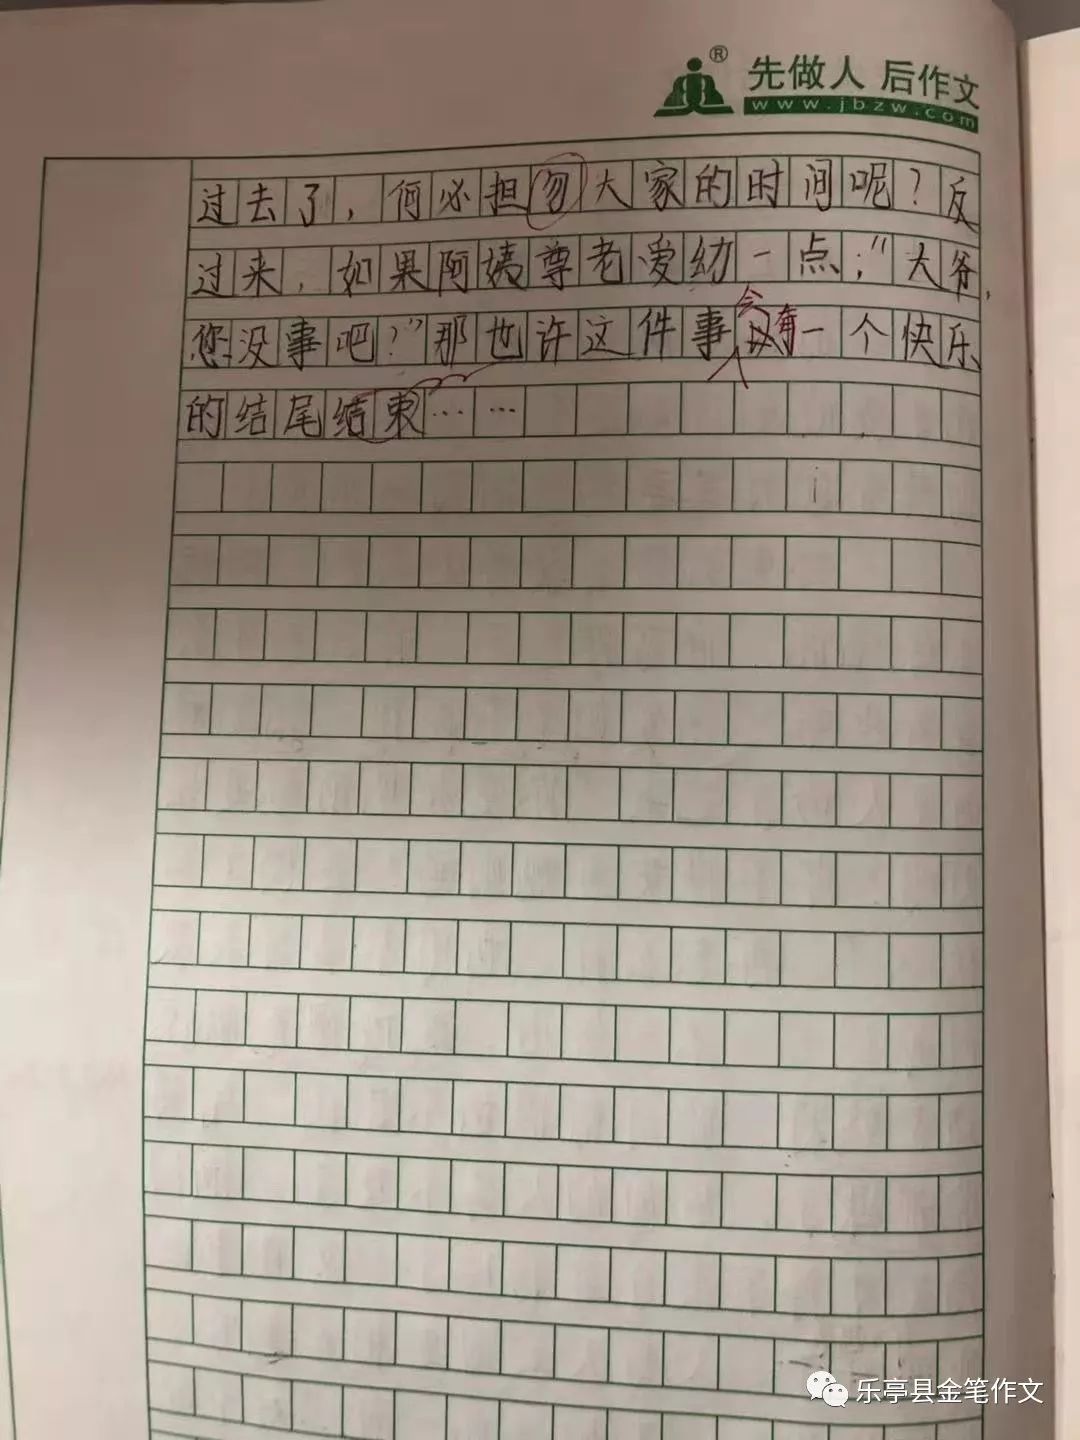 ®
先做人 后作文
www.jbzw.com
过去了，何必担勿大家的时间呢？反
过来，如果阿姨尊老爱幼一点；"大爷，
您没事吧？"那也许这件事会有一个快乐
的结尾结束……
乐亭县金笔作文